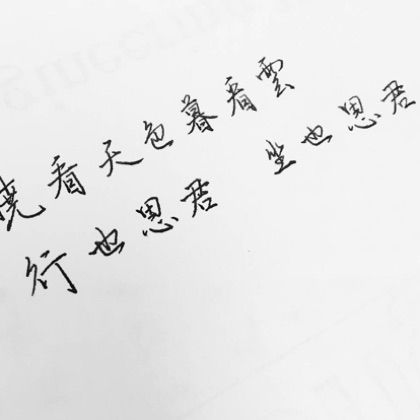 曉看天色暮看雲
行也思君 坐也思君